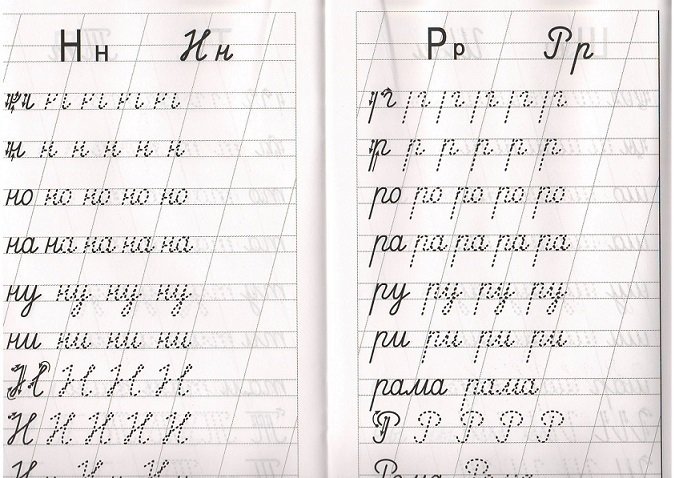 Н н Н н
н н н н н н
но но но но но
на на на на на
ну ну ну ну
ни ни ни ни
Н Н Н Н Н
Н Н Н Н Н
Р р Р р
р р р р р р
ро ро ро ро ро
ра ра ра ра ра
ру ру ру ру
ри ри ри ри
рама рама
Р Р Р Р Р
Рама Рама